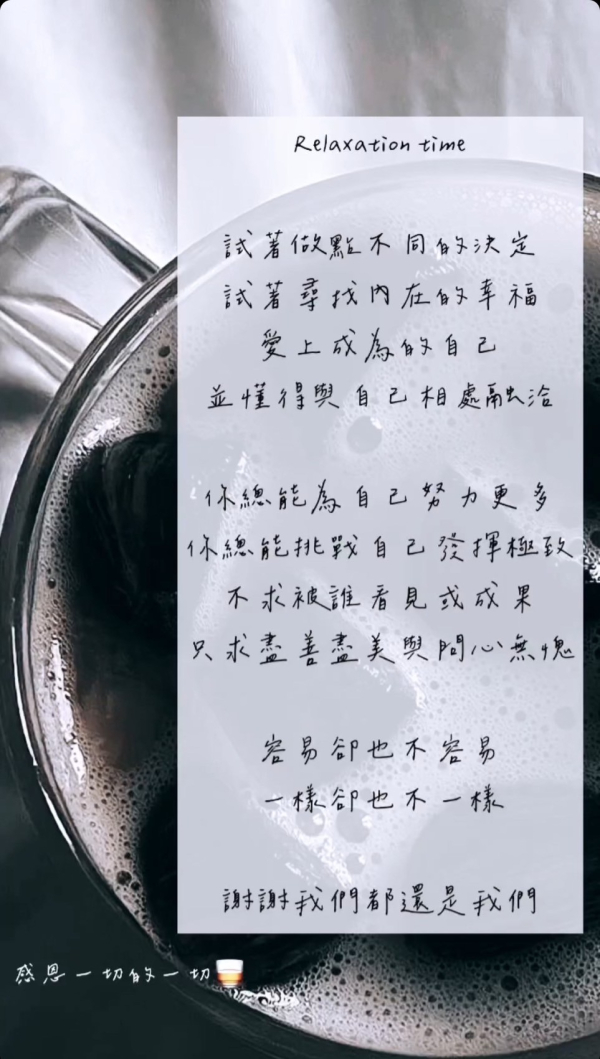 Relaxation time
試著做點不同的決定
試著尋找內在的幸福
愛上成為的自己
並懂得與自己相處融洽
你總能為自己努力更多
你總能挑戰自己發揮極致
不求被誰看見或成果
只求盡善盡美與問心無愧
容易卻也不容易
一樣卻也不一樣
謝謝我們都還是我們
感恩一切的一切🥃